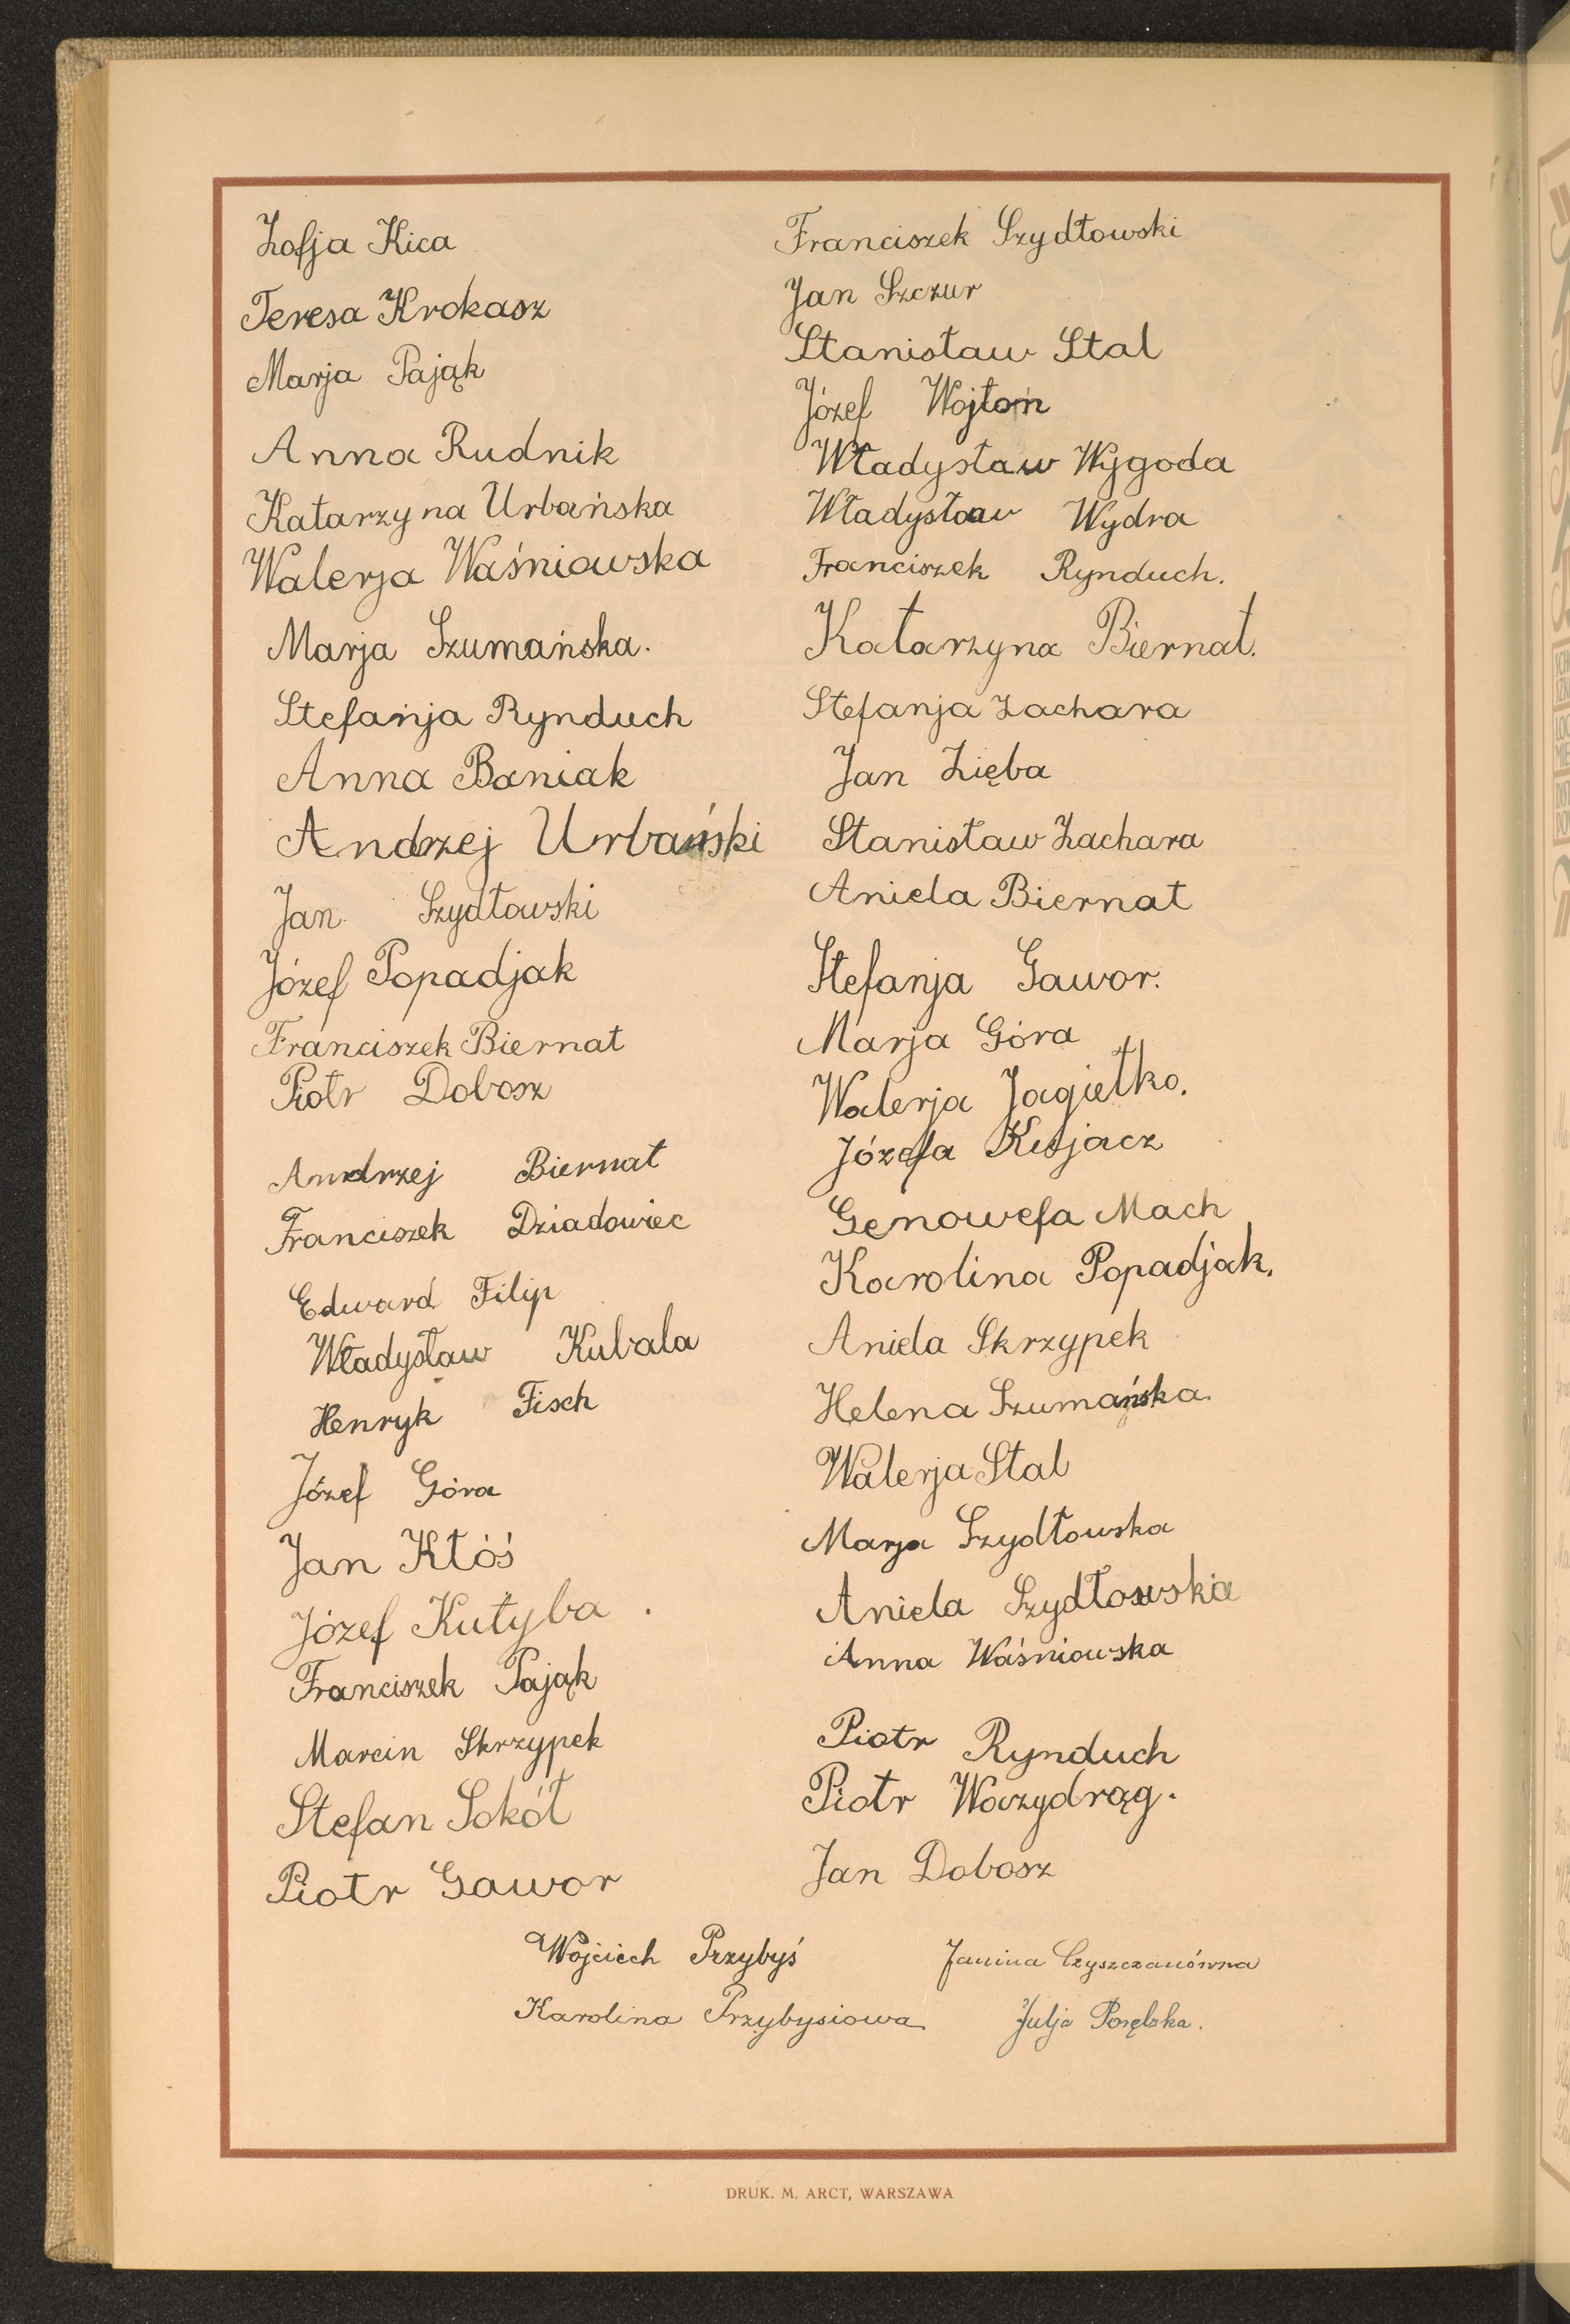 Zofja Kica
Teresa Krokasz
Marja Pająk
Anna Rudnik
Katarzyna Urbańska
Walerja Waśniowska
Marja Szumańska.
Stefanja Rynduch
Anna Baniak
Andrzej Urbański
Jan Szydłowski
Józef Popadjak
Franciszek Biernat
Piotr Dobosz
Andrzej Biernat
Franciszek Dziadowiec
Edward Filip
Władysław Kubala
Henryk Fisch
Józef Góra
Jan Kłóś
Józef Kutyba
Franciszek Pająk
Marcin Skrzypek
Stefan Sokół
Piotr Gawor
Franciszek Szydłowski
Jan Szczur
Stanisław Stal
Józef Wojtoń
Władysław Wygoda
Władysław Wydra
Franciszek Rynduch.
Katarzyna Biernat.
Stefanja Zachara
Jan Zięba
Stanisław Zachara
Aniela Biernat
Stefanja Gawor.
Marja Góra
Walerja Jagiełko.
Józefa
Genowefa Mach
Karolina Popadjak.
Aniela Skrzypek
Helena Szumańska
Walerja Stal
Marja Szydłowska
Aniela Szydłowska
Anna Waśniowska
Piotr Rynduch
Piotr Warzydrąg.
Jan Dobosz
Wojciech Przybyś
Karolina Przybysiowa
Janina Czyszczanówna
Julja
DRUK. M. ARCT, WARSZAWA